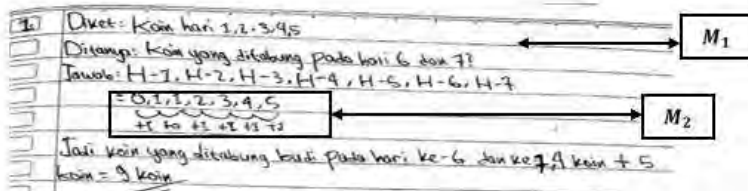 1. Diket: Koin hari 1,2,3,4,5
Ditanya: Koin yang ditabung pada hari 6 dan 7?
M₁
Jawab: H-1, H-2, H-3, H-4, H-5, H-6, H-7
= 0,1,1,2,3,4,5
M₂
+1 +0 +1 +1 +1 +1
Jadi koin yang ditabung budi pada hari ke-6 dan ke 7, 4 koin + 5
koin = 9 koin